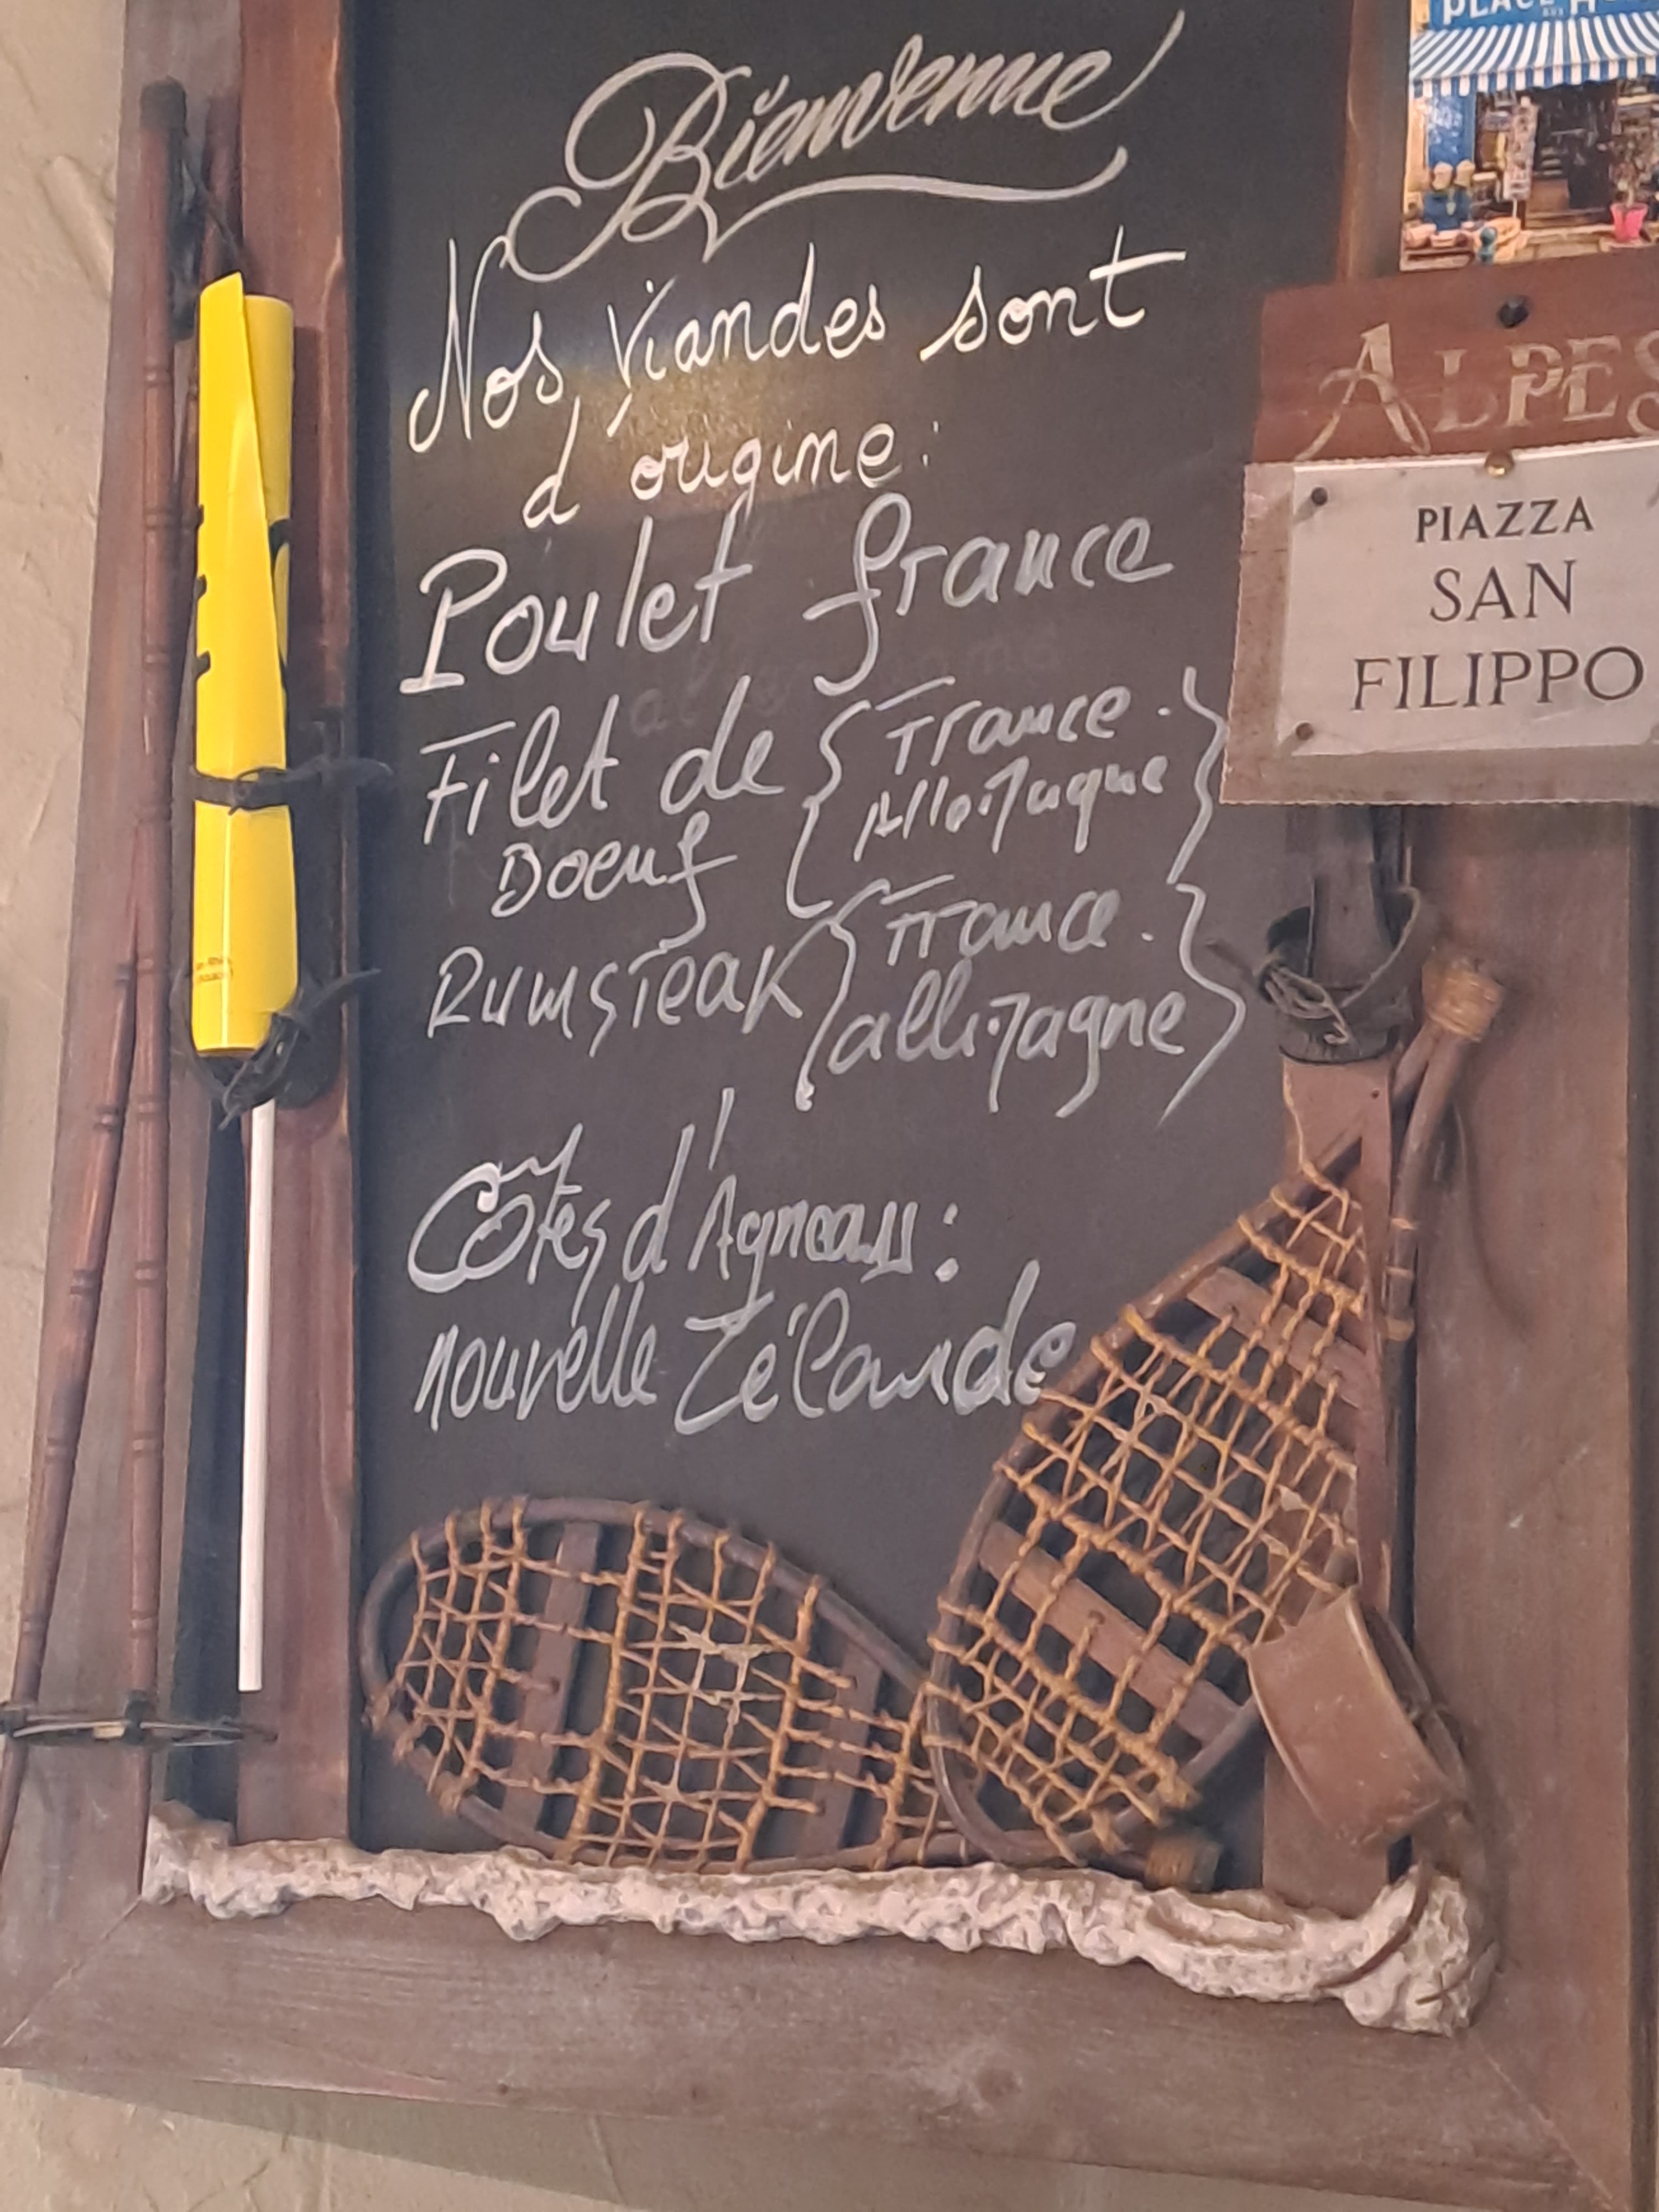 Bienvenue
Nos viandes sont
d'origine:
Poulet france
Filet de { France.
Boeuf { Allemagne }
Rumsteak { France.
allemagne }
Côtes d'Agneau :
nouvelle Zélande
PLACE
ALPES
PIAZZA
SAN
FILIPPO